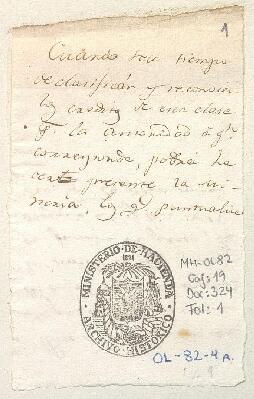 1
Cuando sea tiempo
de clasificar y reconocer
los creditos de esta clase
pr. la autoridad á qn.
corresponda, podrá ha
cerse presente la mi-
noria,
MINISTERIO-DE-HACIENDA
ARCHIVO HISTORICO
MH-OL82
Caj: 19
Doc: 324
Fol: 1
OL-82-4a